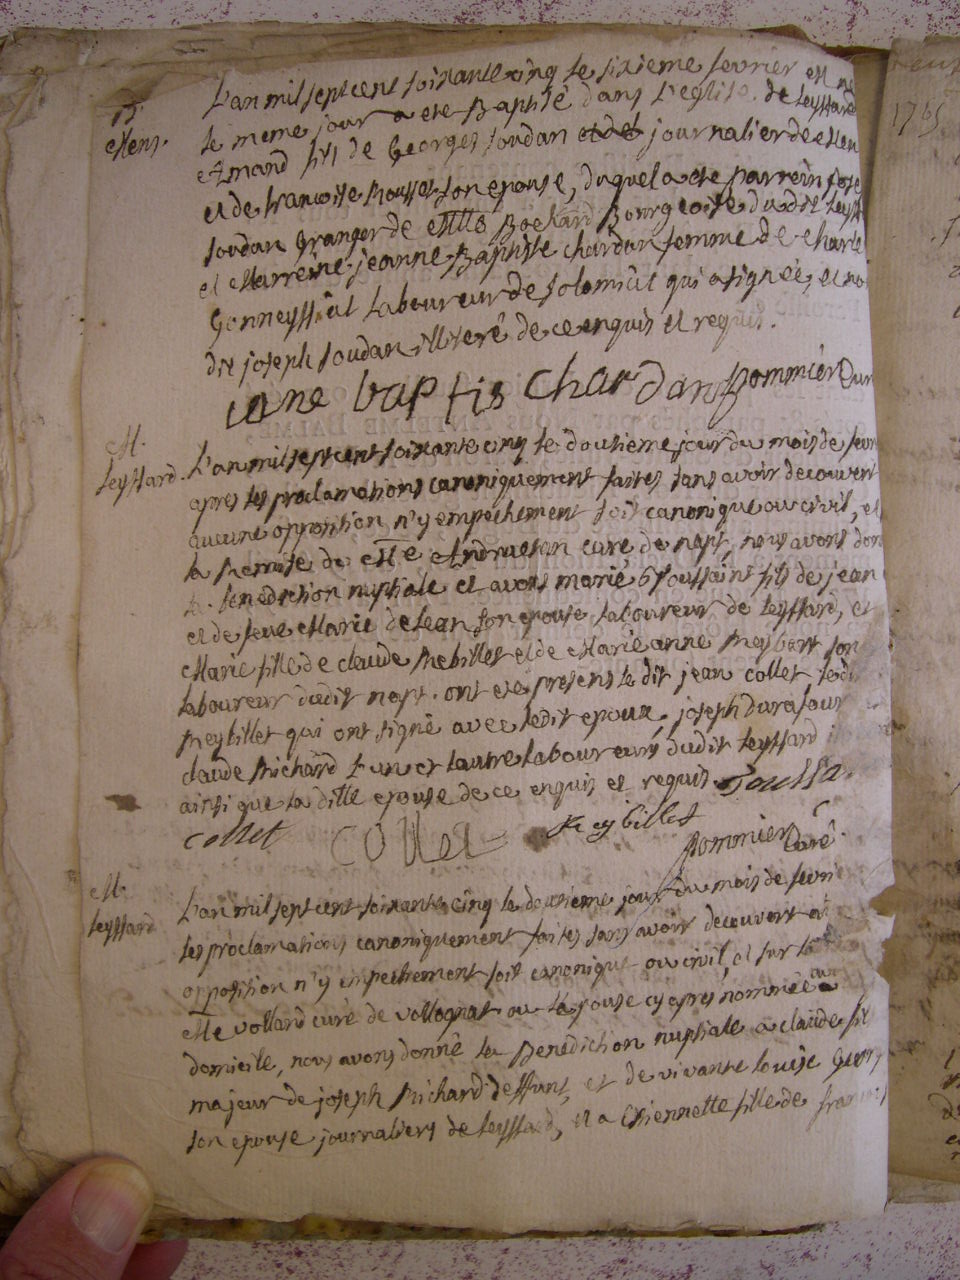 B.
L'an mil sept cent soixante cinq le sixieme fevrier est né
le meme jour a eté Baptisé dans l'eglise de Leyssard
Amand fils de Georges Soudan journalier de
et de francoise son epouse, duquel a eté parrein Jose
Soudan Granger de Bourgeoise du dit Leyss
et Marreine jeanne Baptiste Chardan femme de Charle
Gonneyssiat Laboureur de Solomiat qui a signée, et no
dit joseph Soudan illiteré de ce enquis et requis.
iane baptis Chardan Pommier Cur
M.
Leyssard.
L'an mil sept cent soixante cinq le dousieme jour du mois de fevr
apres les proclamations canoniquement faites sans avoir decouvert
aucune opposition, n'y empechement soit canonique ou civil, et
la Remise de Mre Andruesan curé de napt, nous avons don
la Benediction nuptiale et avons marié Toussaint fils de jean
et de feue Marie de Lean son epouse laboureur de Leyssard, et
Marie fille de claude Rebillet et de Marie anne son
laboureur dudit napt. ont eté presens le dit jean collet ledi
Reybillet qui ont signé avec ledit epoux, joseph Durafour
claude Richard l'un et lautre laboureurs dudit Leyssard
ainsi que la ditte epouse de ce enquis et requis. Toussa
collet Collet Reybillet
Pommier Curé
M.
Leyssard
L'an mil sept cent soixante cinq le dousieme jour du mois de fevri
les proclamations canoniquement faites sans avoir decouvert
opposition n'y empechement soit canonique ou civil, et sur
Mre vollard curé de vollognat ou lepouse cy apres nommée
domicile, nous avons donné la Benediction nuptiale a claude fil
majeur de joseph Richard deffunt, et de vivante louise
son epouse journaliers de Leyssard, et a Etiennette fille de francois
1765